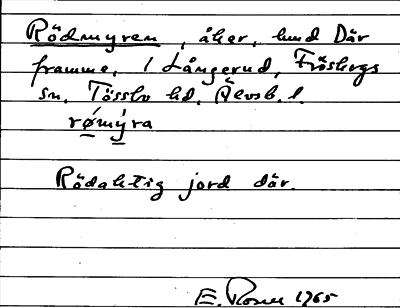 Rödmyren, åker, hmd Där
framme, 1 Långerud, Fröskogs
sn, Tössbo hd, Älvsb. l.
rømýra
Rödaktig jord där.
E. Rosell 1965